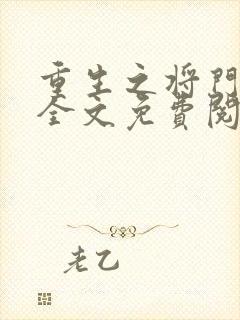 重生之将门
全文免費閱
老乙